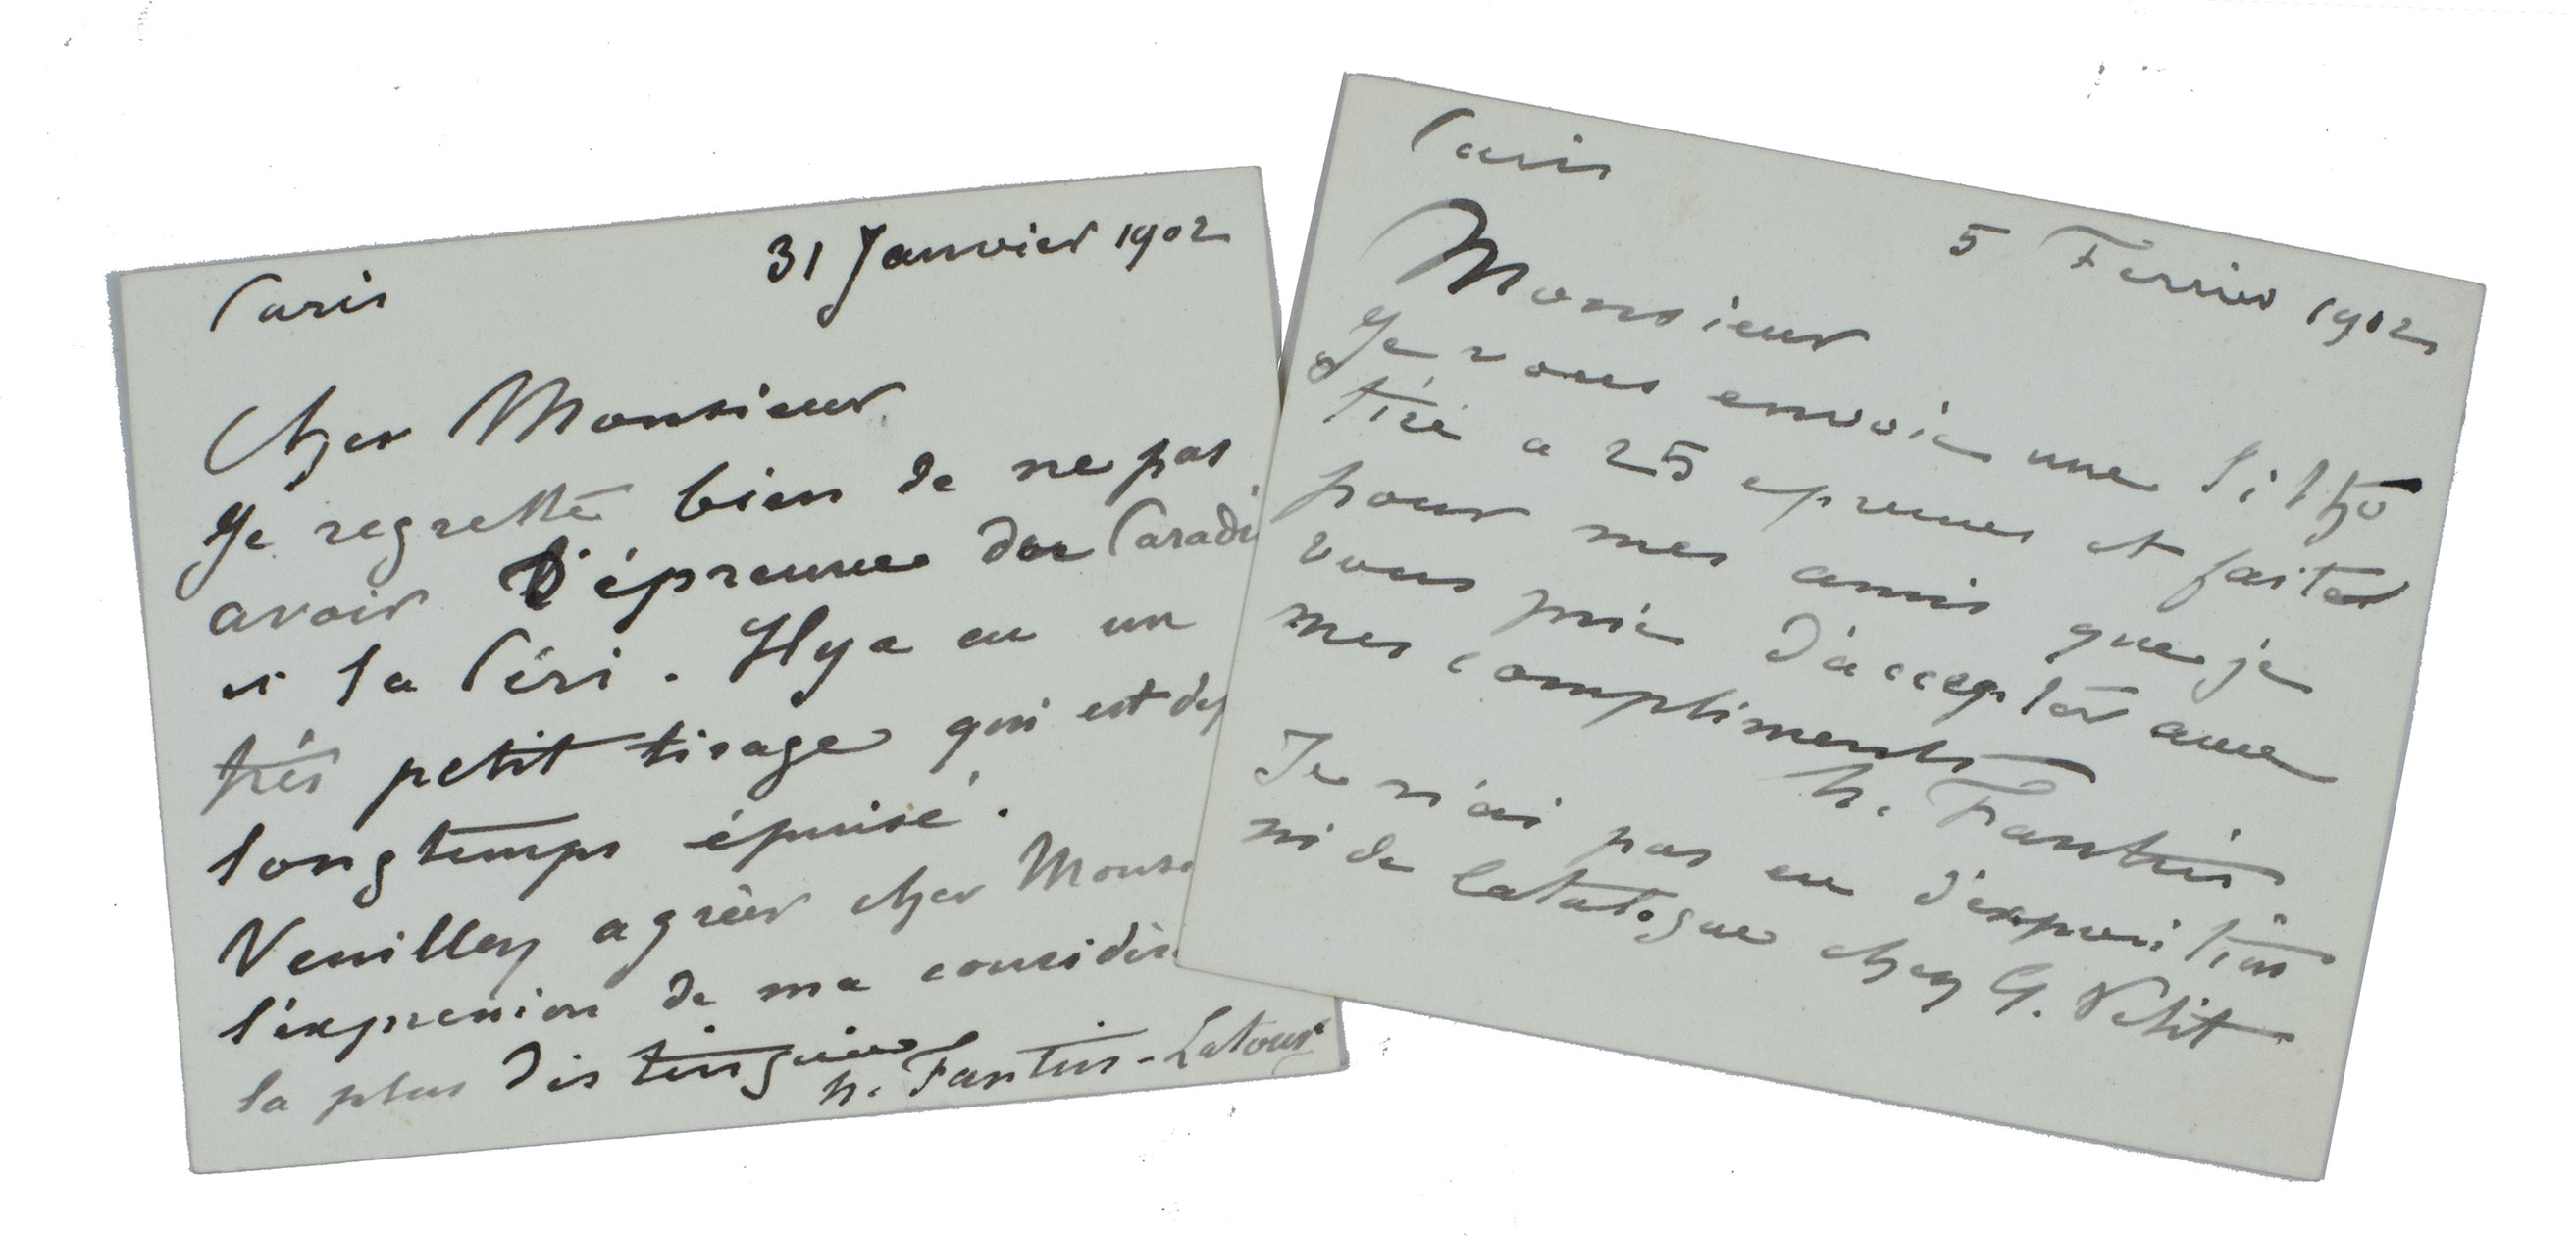 Paris
31 Janvier 1902
Cher Monsieur
Je regrette bien de ne pas
avoir l'épreuve du Paradi
et la Péri. Il y a eu un
très petit tirage qui est dep
longtemps épuisé.
Veuillez agréer cher Monsi
l'expression de ma considéra
la plus distinguée
h. Fantin-Latour
Paris
5 Fevrier 1902
Monsieur
Je vous envoie une litho
tiré a 25 epreuves et faites
pour mes amis que je
vous prie d'accepter avec
mes compliments
h. Fantin
Je n'ai pas eu d'exposition
ni de Catalogue chez G. Petit